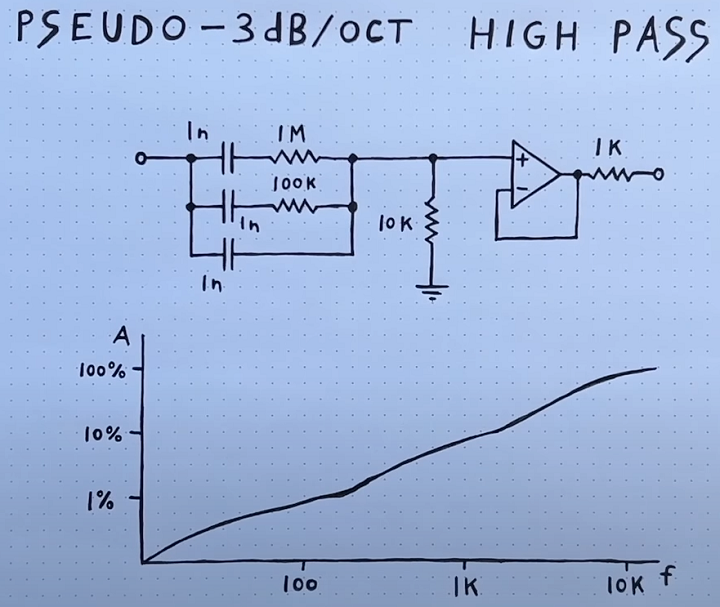 PSEUDO -3dB/OCT HIGH PASS
1n 1M
100K
1n
1n
10K
+
-
1K
A
100%
10%
1%
100 1K 10K f